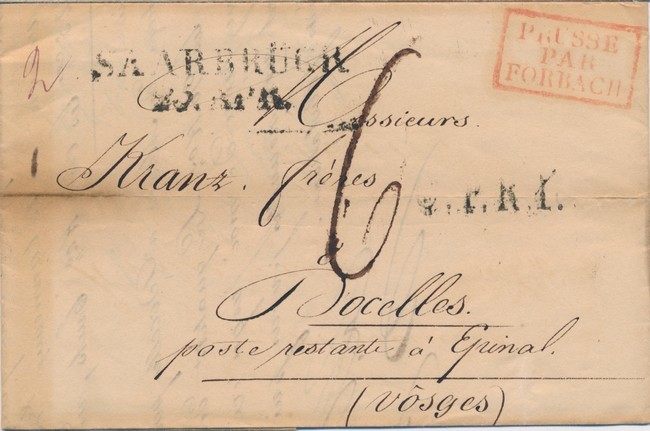 2
SAARBRÜCK
25. APR.
PRUSSE
PAR
FORBACH
Messieurs
Kranz. fréres
6
C.P.R.1.
à
Docelles.
poste restante á Epinal.
(Vôsges)